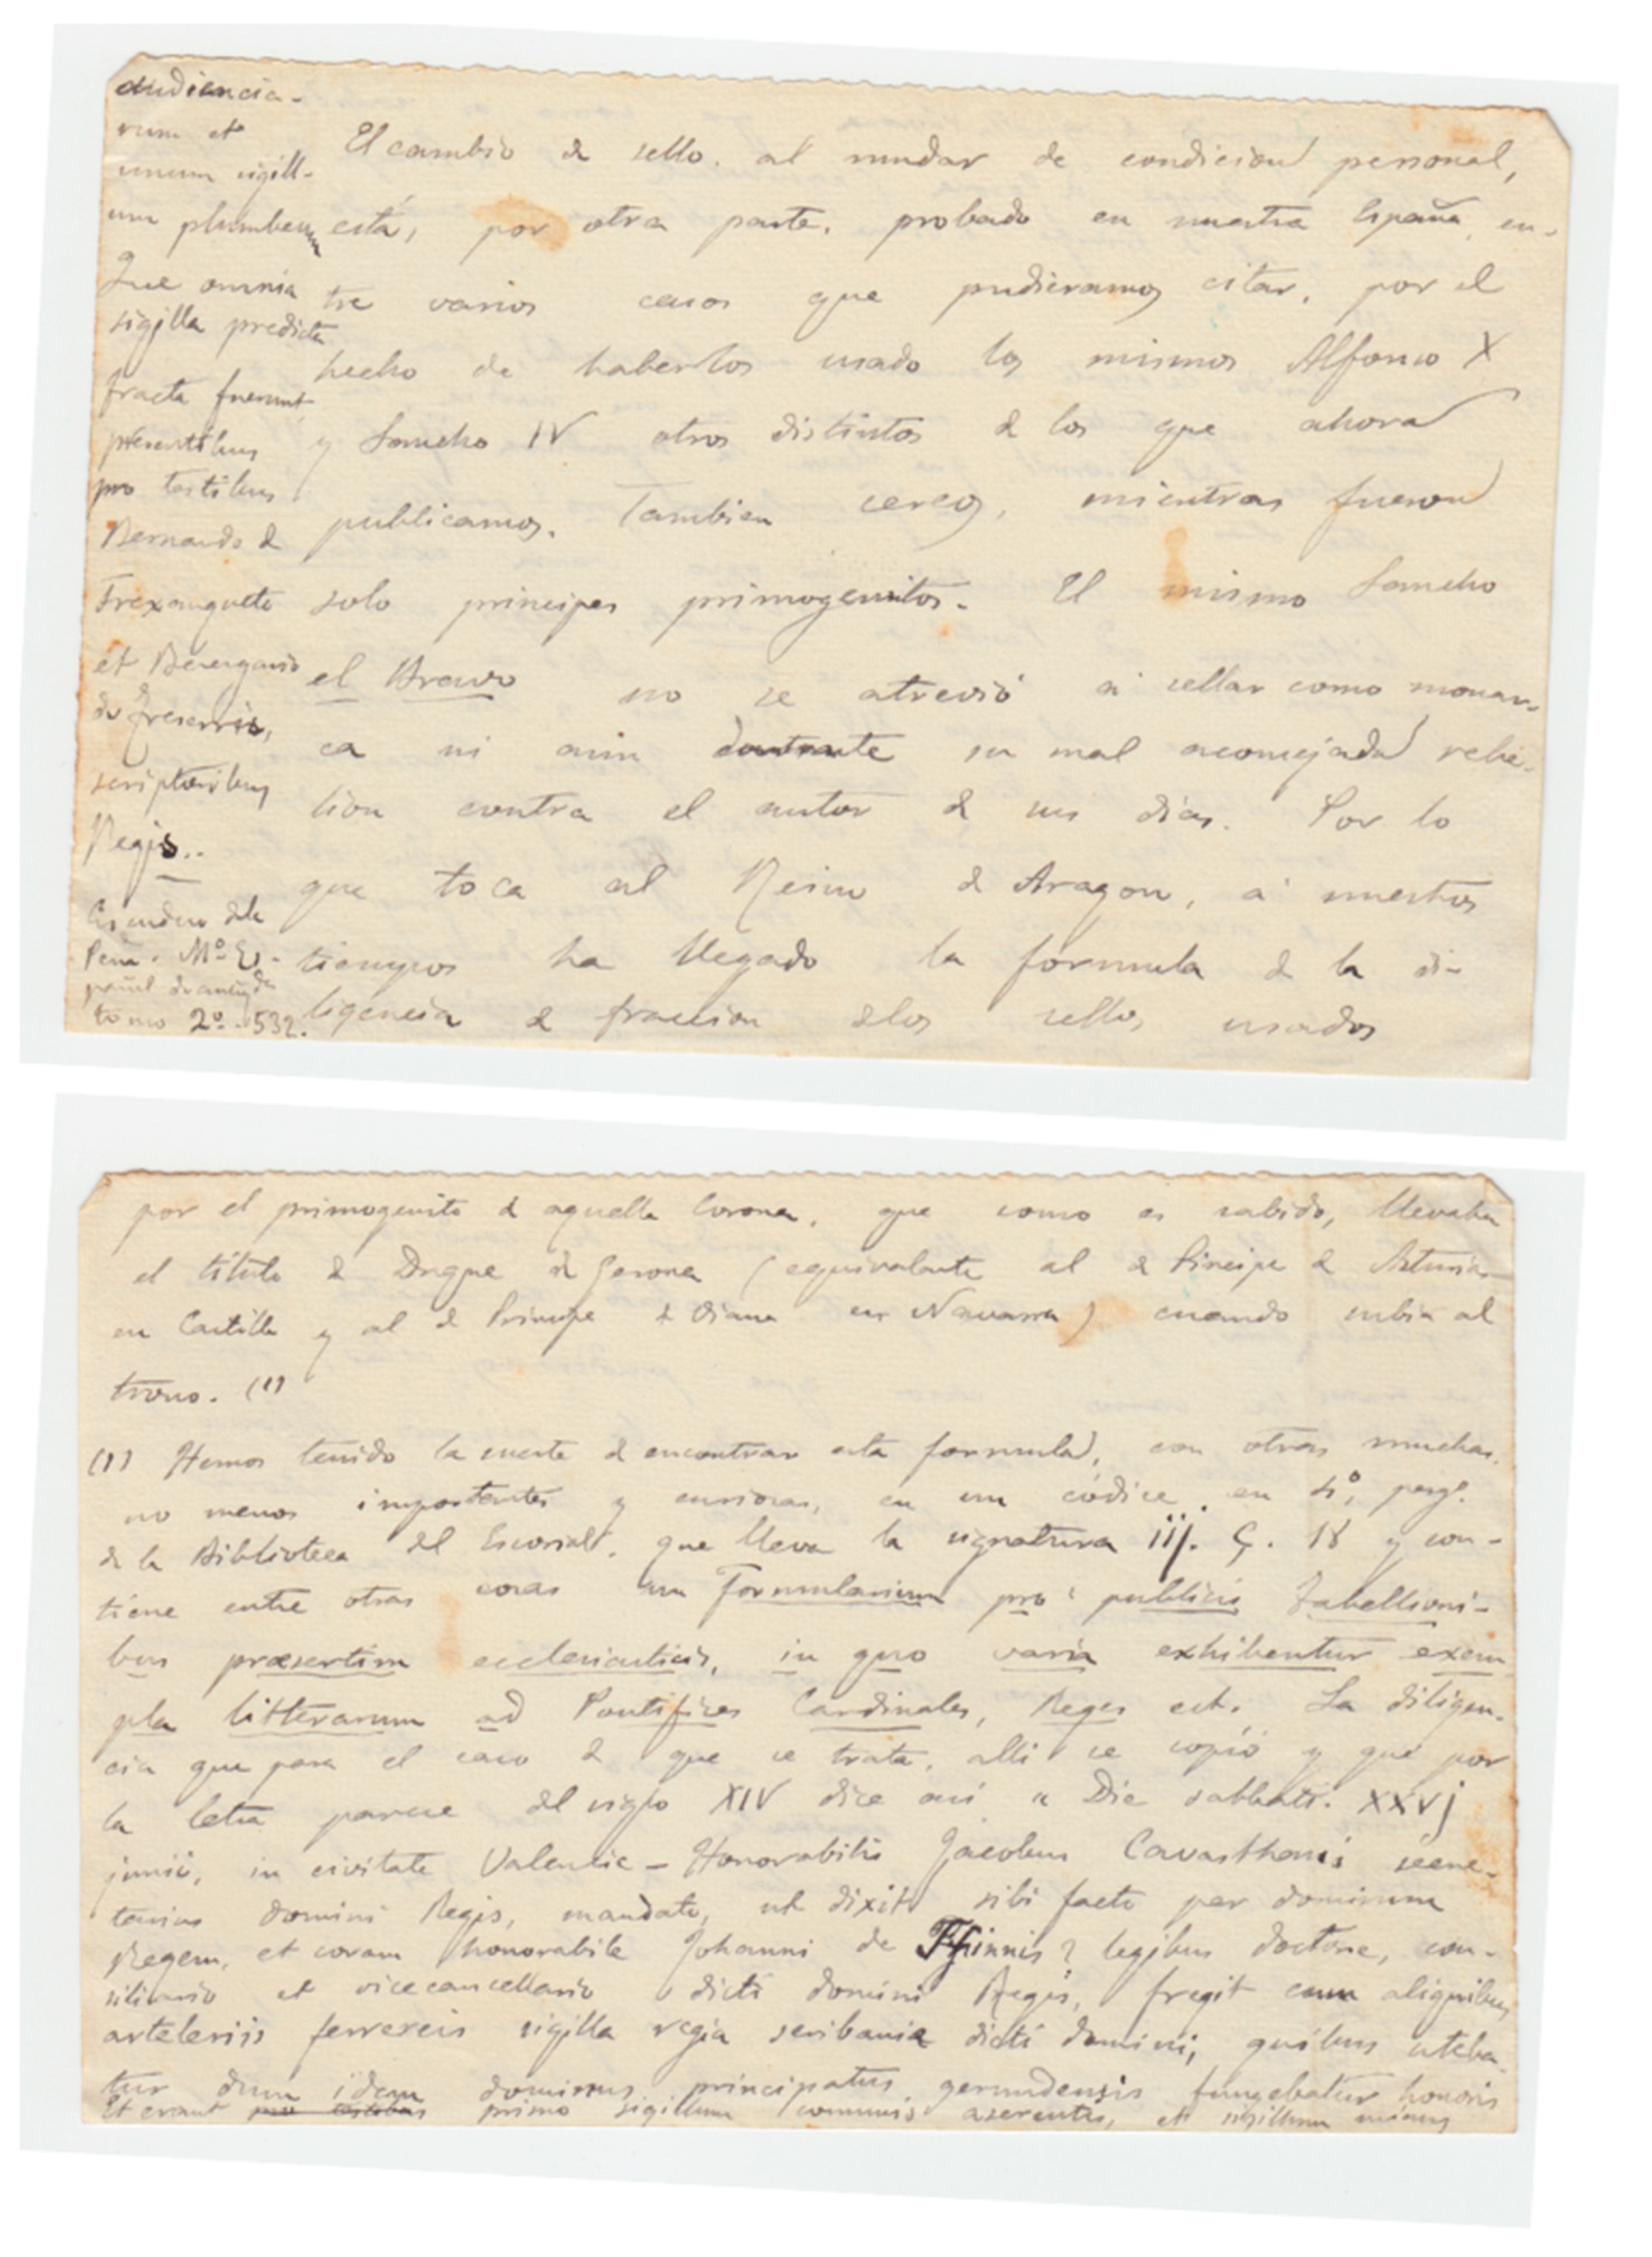 audiencia-
rum et
unum sigill-
um plumbeum
Que omnia
sigilla predicta
fracta fuerunt
presentibus
pro testibus
Bernardo d
Trexanguete
et Berengario
de
scriptoribus
Regis..
Escudero dela
Peña. Mº Es-
pañol de antigds
tomo 2º - 532.
El cambio d sello. al mudar de condicion personal,
está, por otra parte, probado en nuestra España, en-
tre varios casos que pudieramos citar, por el
hecho de haberlos usado los mismos Alfonso X
y Sancho IV otros distintos d los que ahora
publicamos. Tambien cereos, mientras fueron
solo principes primogenitos. El mismo Sancho
el Bravo no se atrevió a sellar como monar-
ca ni aun durante su mal aconsejada rebe-
lion contra el autor d sus dias. Por lo
que toca al Reino d Aragon, a nuestros
tiempos ha llegado la formula d la di-
ligencia d fraccion dlos sellos usados
por el primogenito d aquella Corona, que como es sabido, llevaba
el titulo d Duque d Gerona (equivalente al d Principe d Asturias
en Castilla y al d Principe d Viana en Navarra) cuando subia al
trono. (1)
(1) Hemos tenido la suerte d encontrar esta formula, con otras muchas
no menos importantes y curiosas, en un códice, en 4º, perg.
de la Biblioteca del Escorial, que lleva la signatura iij. Ç. 18 y con-
tiene entre otras cosas un Formularium pro publicis tabellioni-
bus præsertim ecclesiasticis, in quo varia exhibentur exem
pla litterarum ad Pontifices Cardinales, Reges ect. La diligen-
cia que para el caso d que se trata, alli se copió y que por
la letra parece del siglo XIV dice asi « Die sabbati. xxvj
junii, in civitate Valentie - Honorabilis Jacobus Cavasthonis secre-
tarius domini Regis, mandato, ut dixit sibi facto per dominum
Regem, et coram honorabile Johanni de ? legibus doctore, con-
siliario et vicecancellario dicti domini Regis, fregit cum aliquibus
arteleriis ferrereis sigilla regia scribanie dicti domini, quibus uteba-
tur dum idem dominus principatus gerundensis fungebatur honoris
Et erant pro testibus primo sigillum communis aserentes, et sigillum minus